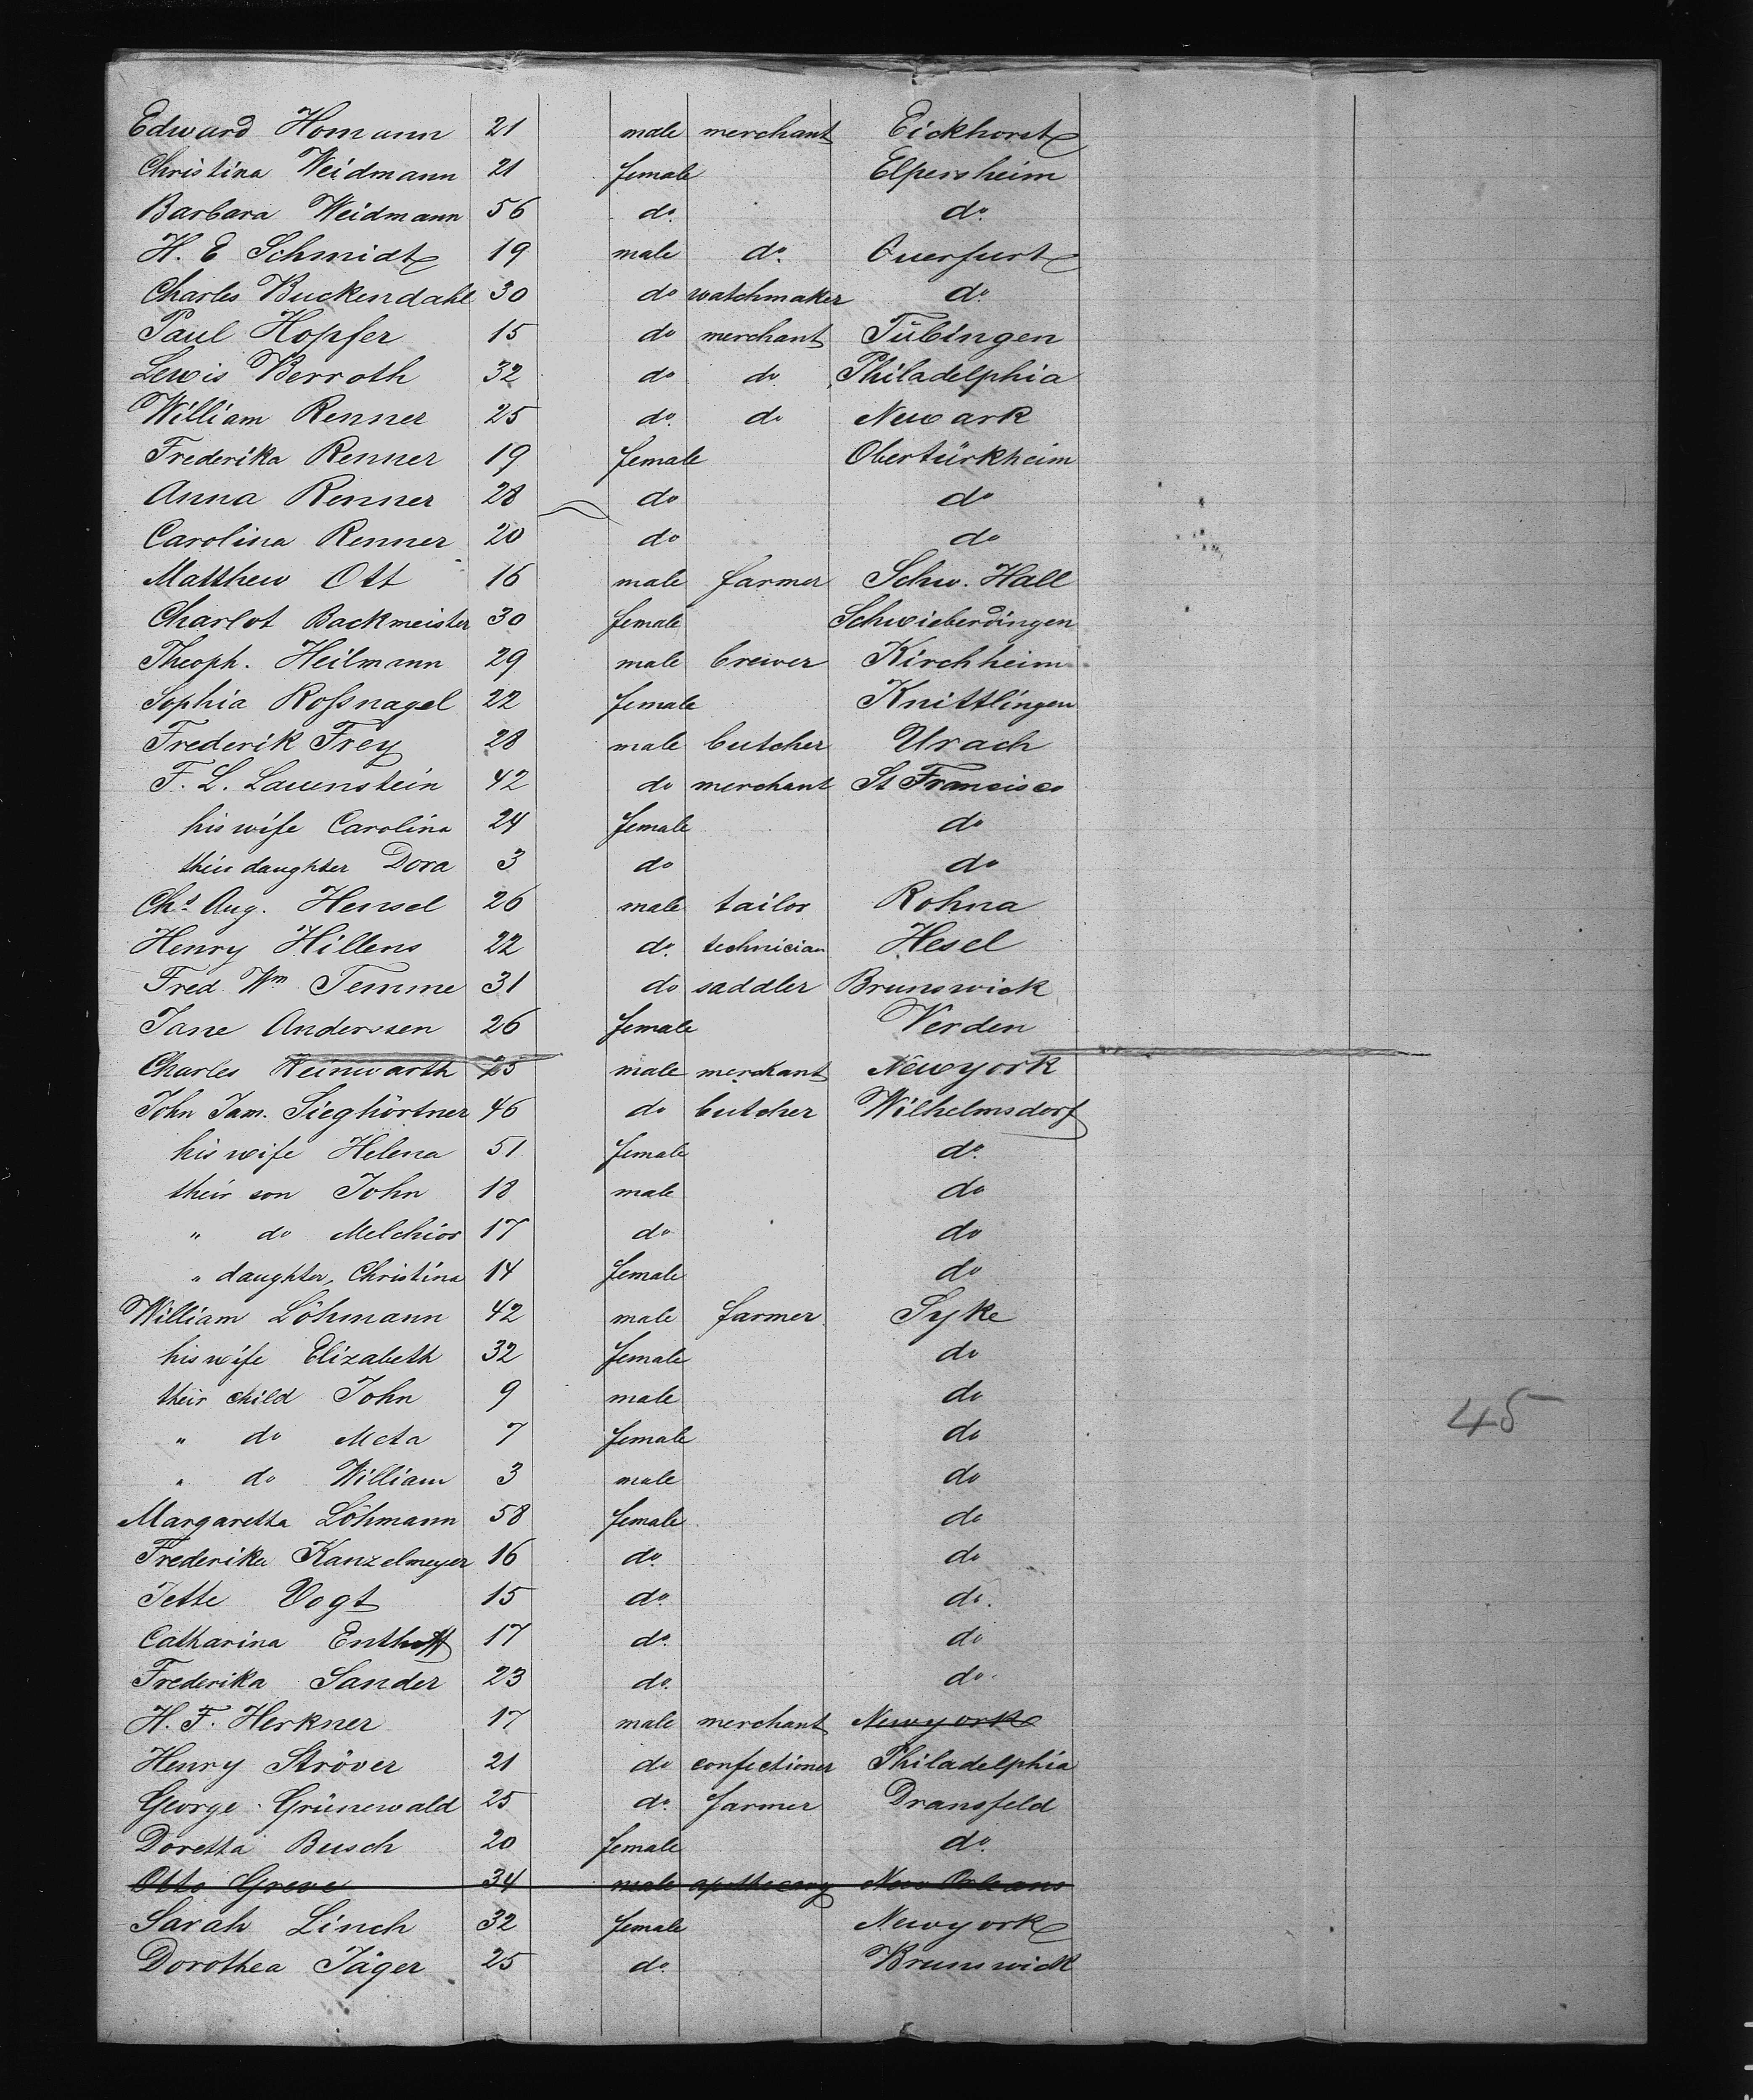 Edward Homann 21 male merchant Eickhorst
Christina Weidmann 21 female Elpersheim
Barbara Weidmann 56 do. do.
H. E Schmidt 19 male do. Querfurt
Charles Buckendahl 30 do watchmaker do.
Paul Hopfer 15 do merchant Tübingen
Lewis Berroth 32 do do Philadelphia
William Renner 25 do. do Newark
Frederika Renner 19 female Obertürkheim
Anna Renner 28 do do
Carolina Renner 20 do do
Matthew Ott 16 male farmer Schw. Hall
Charlot Backmeister 30 female Schwieberdingen
Theoph. Heilmann 29 male brewer Kirchheim
Sophia Roßnagel 22 female Knittlingen
Frederik Frey 28 male butcher Urach
F. L. Lauenstein 42 do merchant St Francisco
his wife Carolina 24 female do
their daughter Dora 3 do do
Chs Aug. Hensel 26 male tailor Rohna
Henry Hillens 22 do. technician Hesel
Fred Wm Temme 31 do saddler Brunswick
Jane Anderssen 26 female Verden
Charles Reinwarth 25 male merchant Newyork
John Jam. Sieghörtner 46 do butcher Wilhelmsdorf
his wife Helena 51 female do.
their son John 18 male do
" do Melchior 17 do do
" daughter, Christina 14 female do
William Löhmann 42 male farmer Syke
his wife Elizabeth 32 female do
their child John 9 male do
" do Meta 7 female do
45
" do William 3 male do
Margaretta Löhmann 58 female do
Frederika Kanzelmeyer 16 do. do
Jette Vogt 15 do. do.
Catharina 17 do. do
Frederika Sander 23 do. do.
H. F. Herkner 17 male merchant Newyork
Henry Ströver 21 do confectioner Philadelphia
George Grünewald 25 do. farmer Dransfeld
Doretta Busch 20 female do.
Otto Greve 34 male apothecary New Orleans
Sarah Linch 32 female Newyork
Dorothea Jäger 25 do. Brunswick